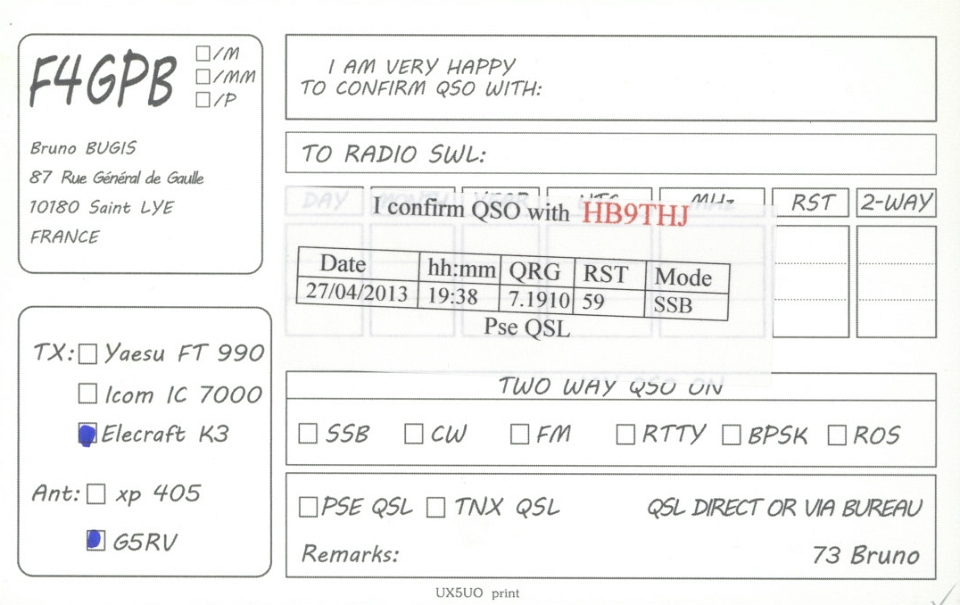 F4GPB
/M
/MM
/P
Bruno BUGIS
87 Rue Général de Gaulle
10180 Saint LYE
FRANCE
TX: Yaesu FT 990
Icom IC 7000
Elecraft K3
Ant: xp 405
G5RV
I AM VERY HAPPY
TO CONFIRM QSO WITH:
TO RADIO SWL:
DAY MONTH YEAR UTC MHz RST 2-WAY
I confirm QSO with HB9THJ
Date hh:mm QRG RST Mode
27/04/2013 19:38 7.1910 59 SSB
Pse QSL
TWO WAY QSO ON
SSB CW FM RTTY BPSK ROS
PSE QSL TNX QSL QSL DIRECT OR VIA BUREAU
Remarks: 73 Bruno
UX5UO print